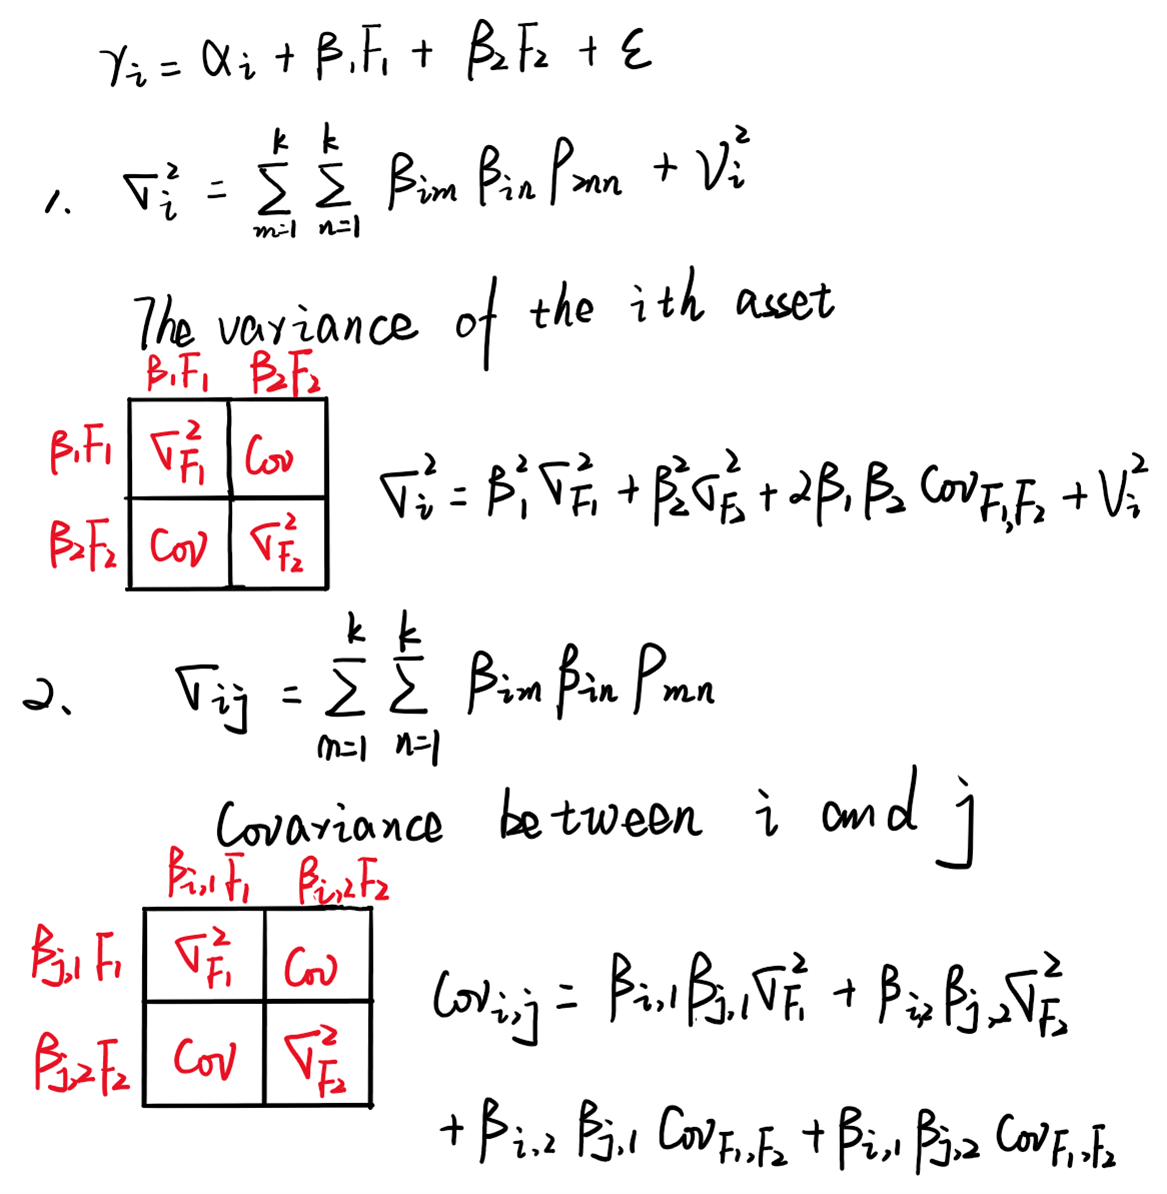 γi = αi + β1F1 + β2F2 + ε
1. σi² = Σ_{m=1}^{k} Σ_{n=1}^{k} βim βin ρmn + Vi²
The variance of the ith asset
β1F1 β2F2
β1F1 σ²F1 Cov
β2F2 Cov σ²F2
σi² = β1²σ²F1 + β2²σ²F2 + 2β1β2 CovF1,F2 + Vi²
2. σij = Σ_{m=1}^{k} Σ_{n=1}^{k} βim βin ρmn
Covariance between i and j
βi,1F1 βi,2F2
βj,1F1 σ²F1 Cov
βj,2F2 Cov σ²F2
Covi,j = βi,1βj,1σ²F1 + βi,2βj,2σ²F2
+ βi,2 βj,1 CovF1,F2 + βi,1 βj,2 CovF1,F2